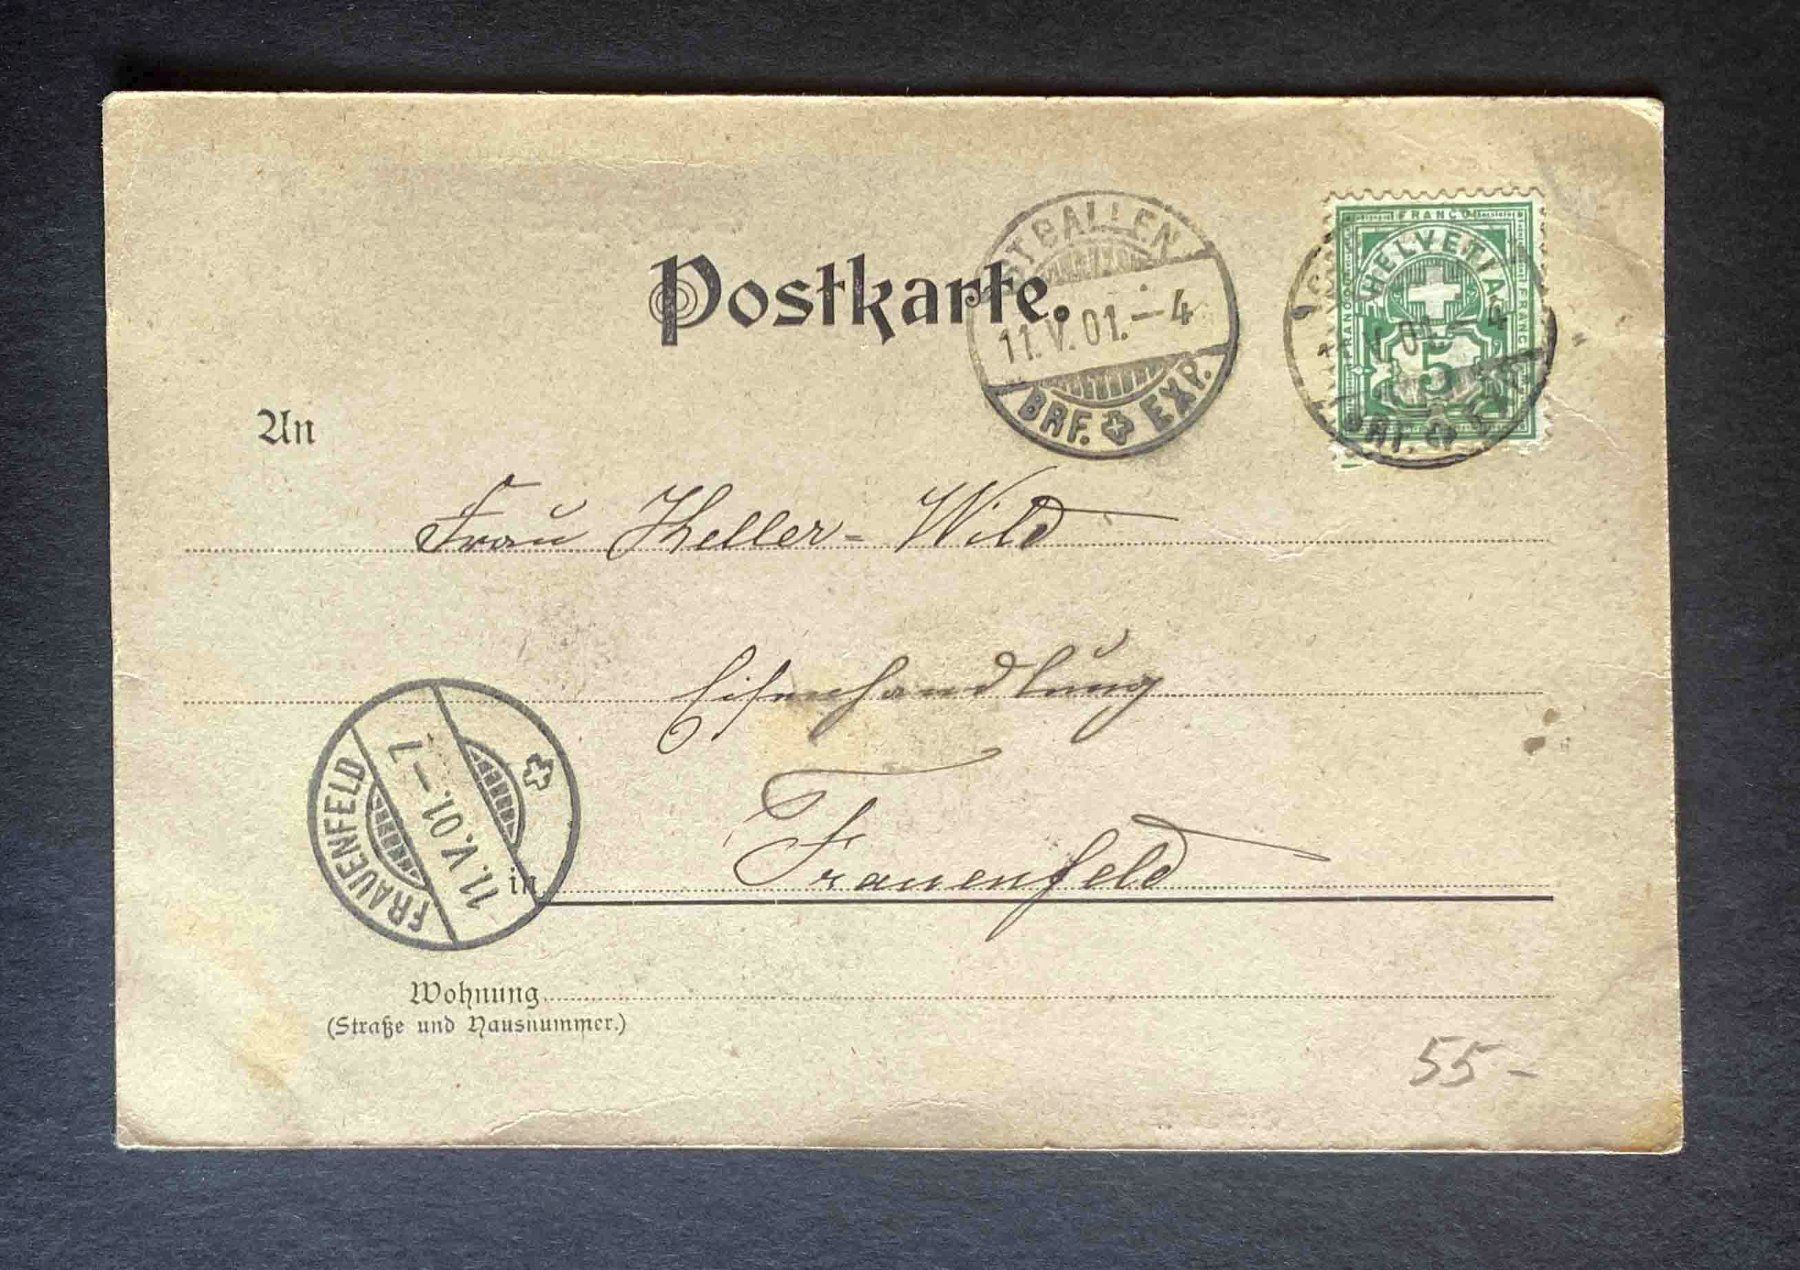 Postkarte.
ST. GALLEN
11. V. 01. – 4
BRF. EXP.
FRANCO
HELVETIA
FRANCO
FRANCO
5
01. – 4
An
Frau Keller-Wild
Eisenhandlung
in Frauenfeld
FRAUENFELD
11. V. 01. – 7
Wohnung
(Straße und Hausnummer.)
55 –